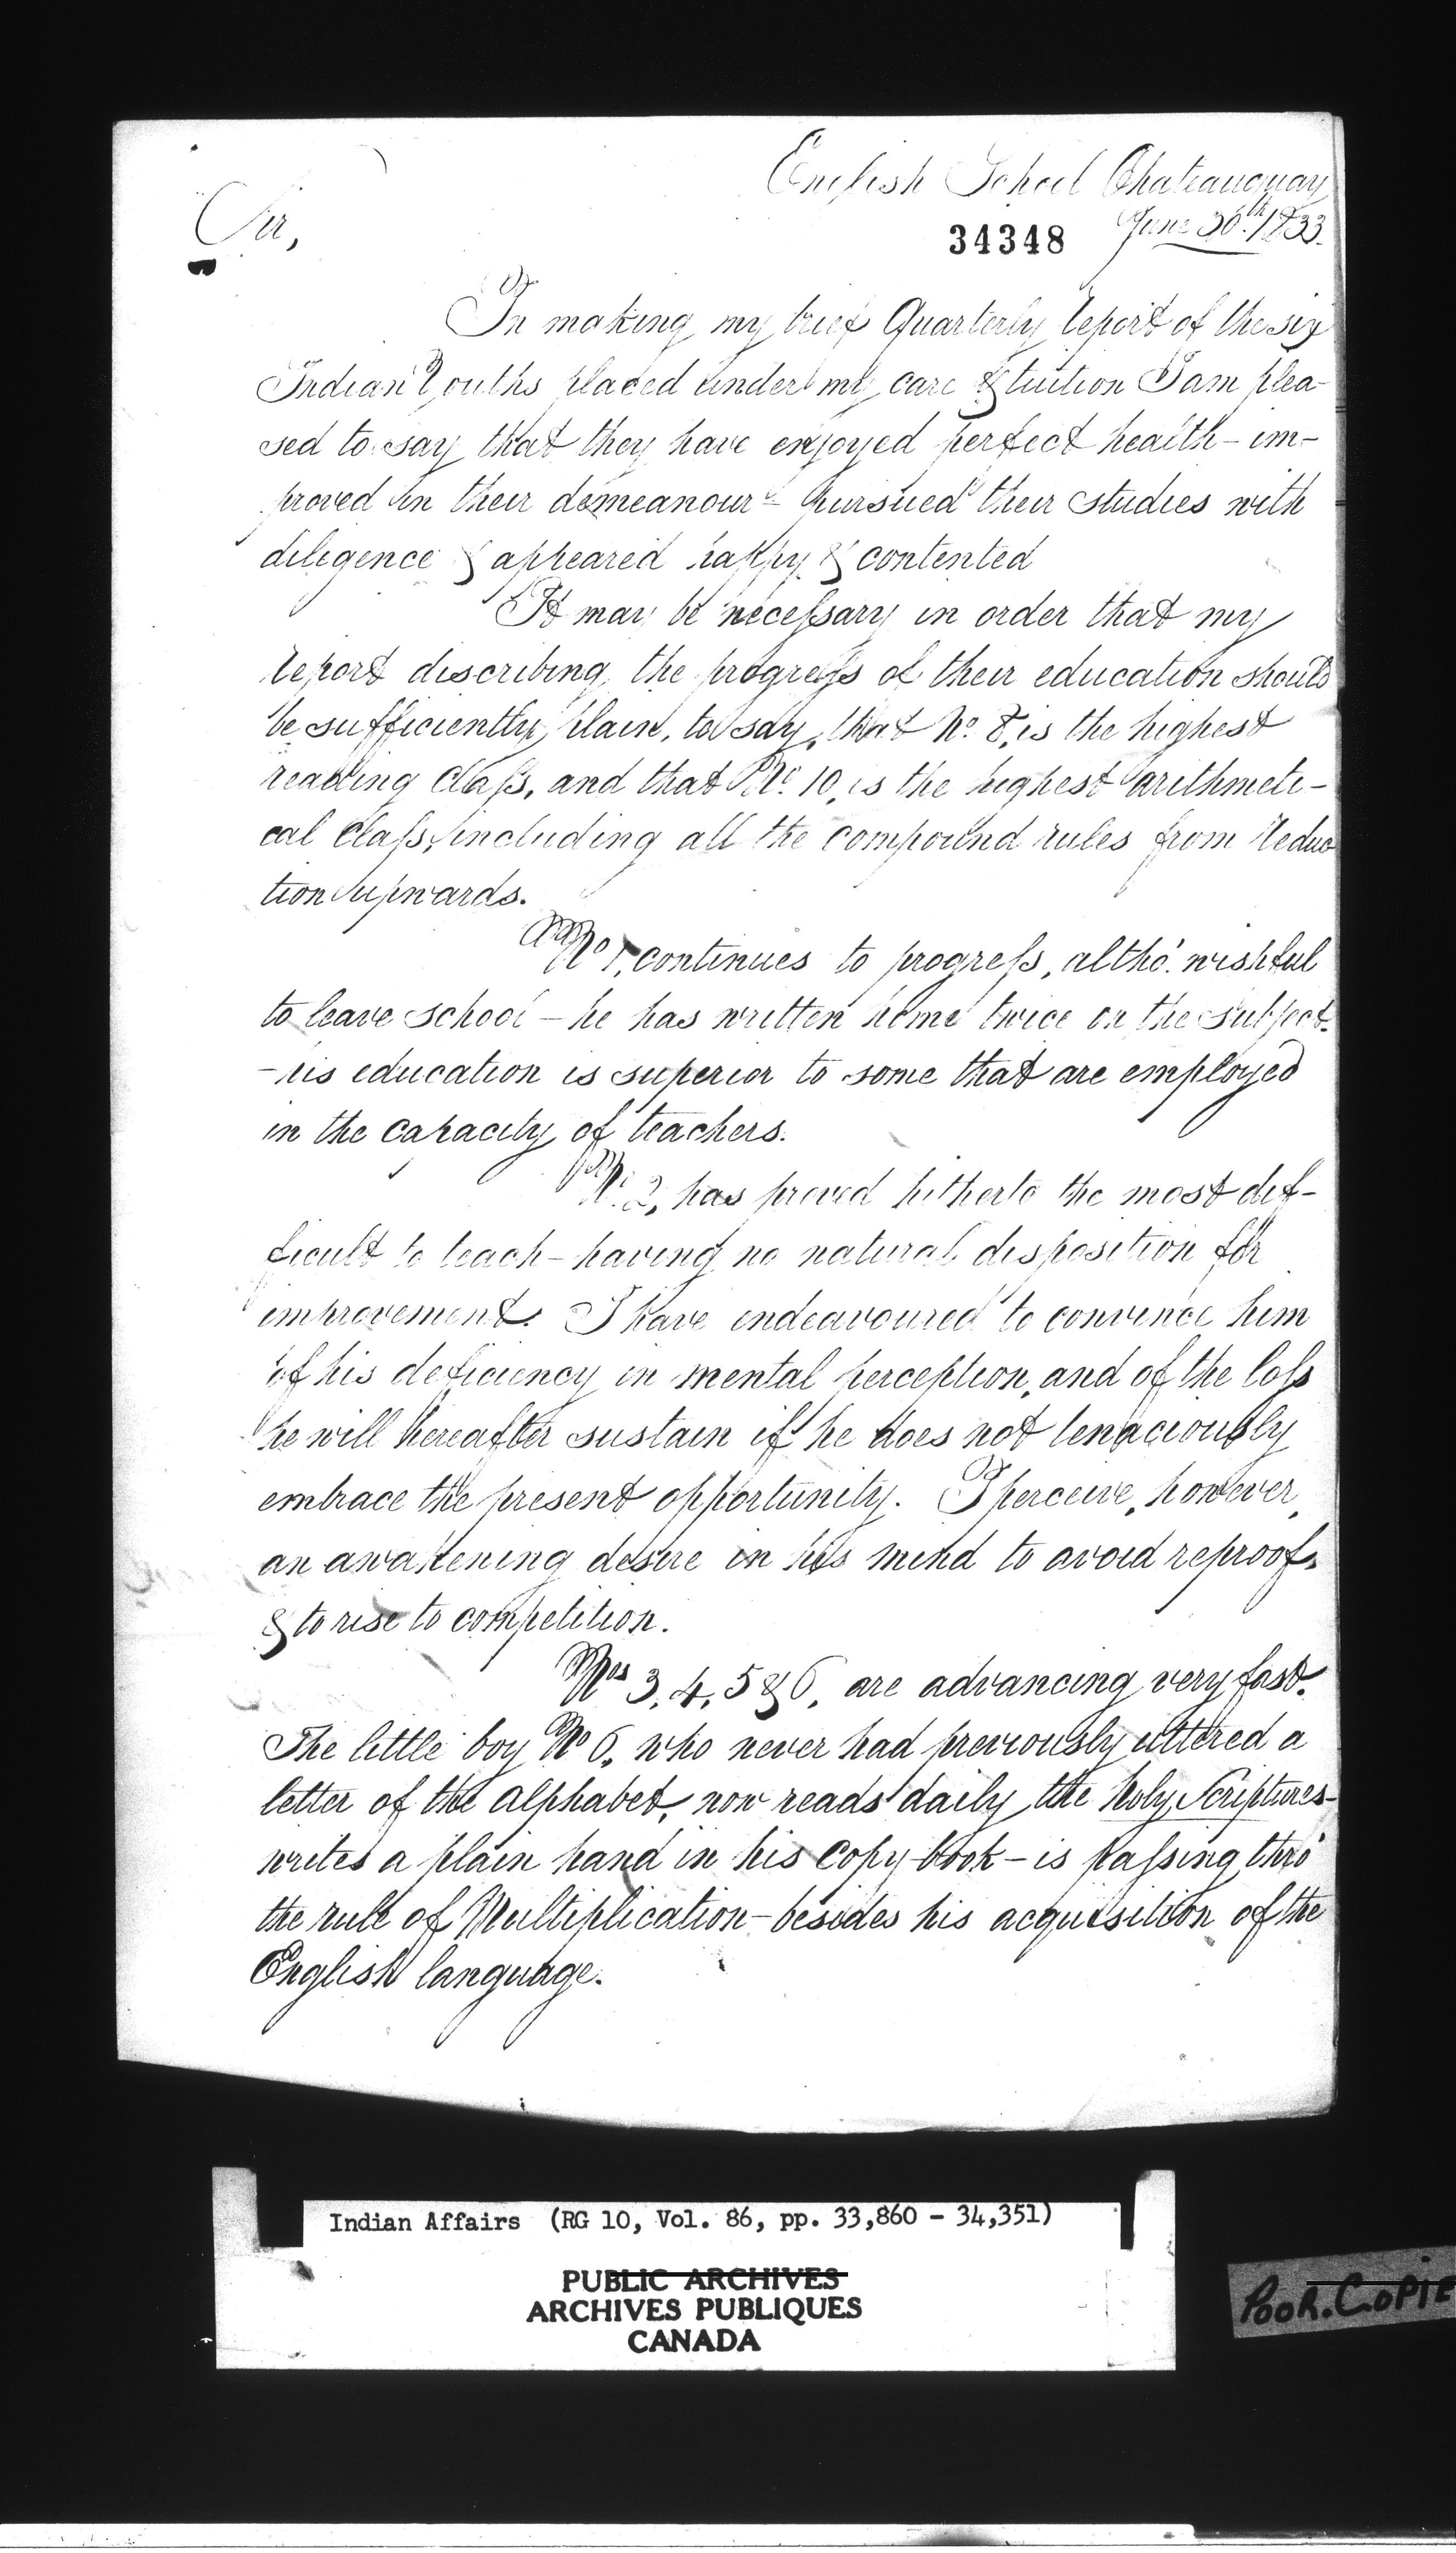 English School Chateauguay
34348 June 30th. 1833.
Sir,
In making my brief Quarterly report of the six
Indian Youths placed under my care & tuition I am plea-
sed to say that they have enjoyed perfect health – im-
proved in their demeanour – pursued their studies with
diligence & appeared happy & contented
It may be necessary in order that my
report discribing the progress of their education should
be sufficiently plain, to say, that No. 8, is the highest
reading class, and that No. 10, is the highest arithmeti-
cal class, including all the compound rules from reduc
tion upwards.
No 1, continues to progress, altho' wishful
to leave school – he has written home twice on the subject.
– his education is superior to some that are employed
in the capacity of teachers.
No. 2, has proved hitherto the most dif-
ficult to teach – having no natural disposition for
improvement. I have endeavoured to convince him
of his deficiency in mental perception, and of the loss
he will hereafter sustain if he does not tenaciously
embrace the present opportunity. I perceive, however,
an awakening desire in his mind to avoid reproof,
& to rise to competition.
Nos 3, 4, 5 & 6, are advancing very fast.
The little boy No 6, who never had previously uttered a
letter of the alphabet, now reads daily the holy Scriptures –
writes a plain hand in his copy-book – is passing thro'
the rule of Multiplication – besides his acquisition of the
English language.
Indian Affairs (RG 10, Vol. 86, pp. 33,860 - 34,351)
PUBLIC ARCHIVES
ARCHIVES PUBLIQUES
CANADA
Poor. Copie